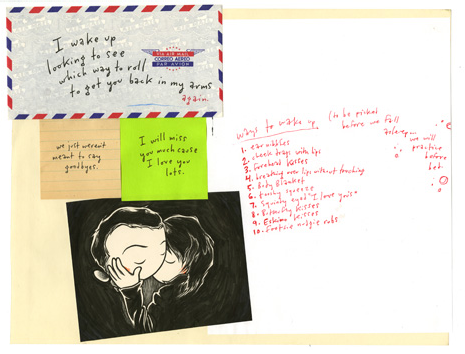 I wake up
looking to see
which way to roll
to get you back in my arms
again.
VIA AIR MAIL
CORREO AEREO
PAR AVION
we just weren't
meant to say
goodbyes.
I will miss
you much cause
I love you
lots.
Ways to wake up (to be picked
before we fall
asleep...
we will
practice
before
bed.
1. ear nibbles
2. cheek traps with lips
3. forehead kisses
4. breathing over lips without touching
5. body blanket
6. tushy squeeze
7. Squinty eyed "I love you's"
8. Butterfly kisses
9. Eskimo kisses
10. footsie midgie rubs.